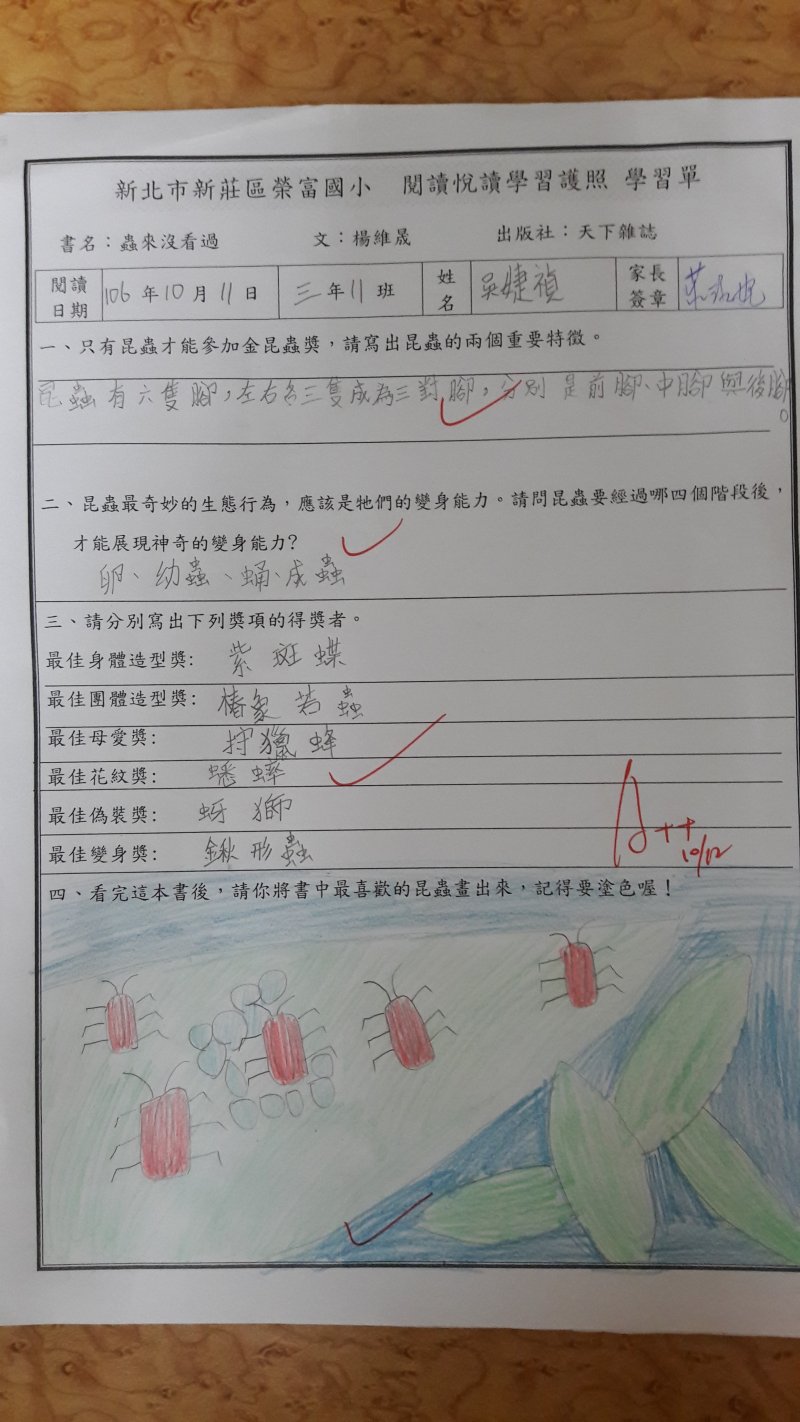 新北市新莊區榮富國小 閱讀悅讀學習護照 學習單
書名：蟲來沒看過 文：楊維晟 出版社：天下雜誌
閱讀日期 106 年 10 月 11 日 三 年 11 班 姓名 吳婕禎 家長簽章
一、只有昆蟲才能參加金昆蟲獎，請寫出昆蟲的兩個重要特徵。
昆蟲有六隻腳，左右各三隻成為三對腳，分別是前腳、中腳與後腳。
二、昆蟲最奇妙的生態行為，應該是牠們的變身能力。請問昆蟲要經過哪四個階段後，
才能展現神奇的變身能力?
卵、幼蟲、蛹、成蟲
三、請分別寫出下列獎項的得獎者。
最佳身體造型獎: 紫斑蝶
最佳團體造型獎: 椿象若蟲
最佳母愛獎: 狩獵蜂
最佳花紋獎: 蟋蟀
最佳偽裝獎: 蚜獅
最佳變身獎: 鍬形蟲
A++
10/12
四、看完這本書後，請你將書中最喜歡的昆蟲畫出來，記得要塗色喔！